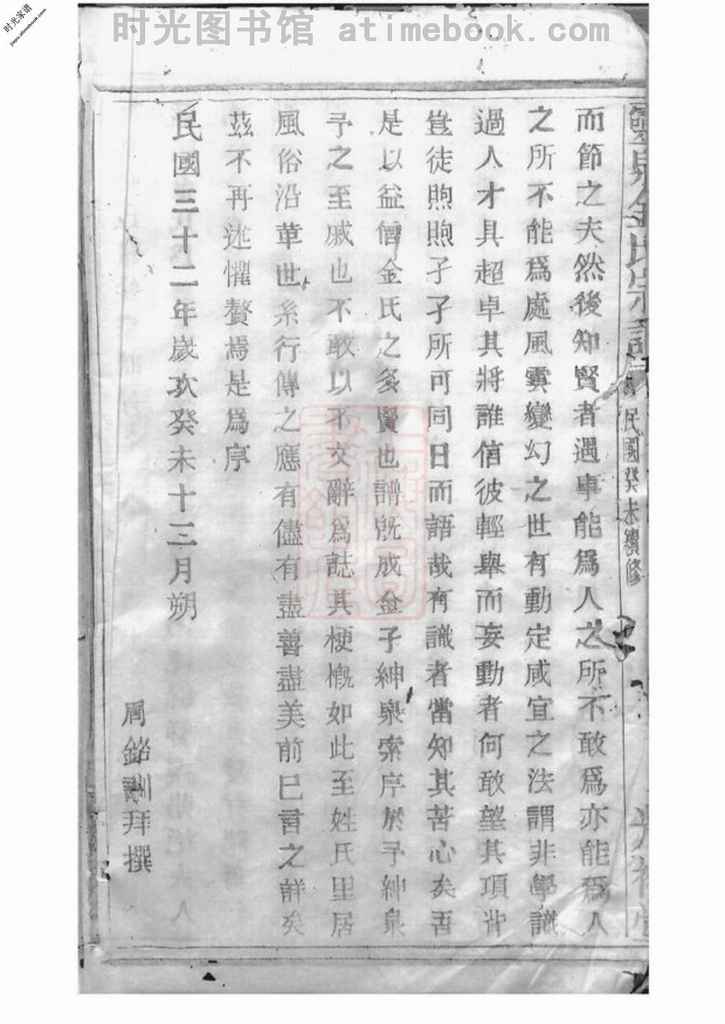 时光图书馆 atimebook.com
时光家谱
民國癸未續修
而節之夫然後知賢者遇事能爲人之所不敢爲亦能爲人
之所不能爲處風雲變幻之世有動定咸宜之法謂非學識
過人才具超卓其將誰信彼輕舉而妄動者何敢望其項背
豈徒煦煦孑孑所可同日而語哉有識者當知其苦心矣吾
是以益信金氏之多賢也譜旣成金子紳泉索序於予紳泉
予之至戚也不敢以不文辭爲誌其梗槪如此至姓氏里居
風俗沿革世系行傳之應有儘有盡善盡美前已言之詳矣
茲不再述懼贅焉是爲序
民國三十二年歲次癸未十二月朔
周銘訓拜撰